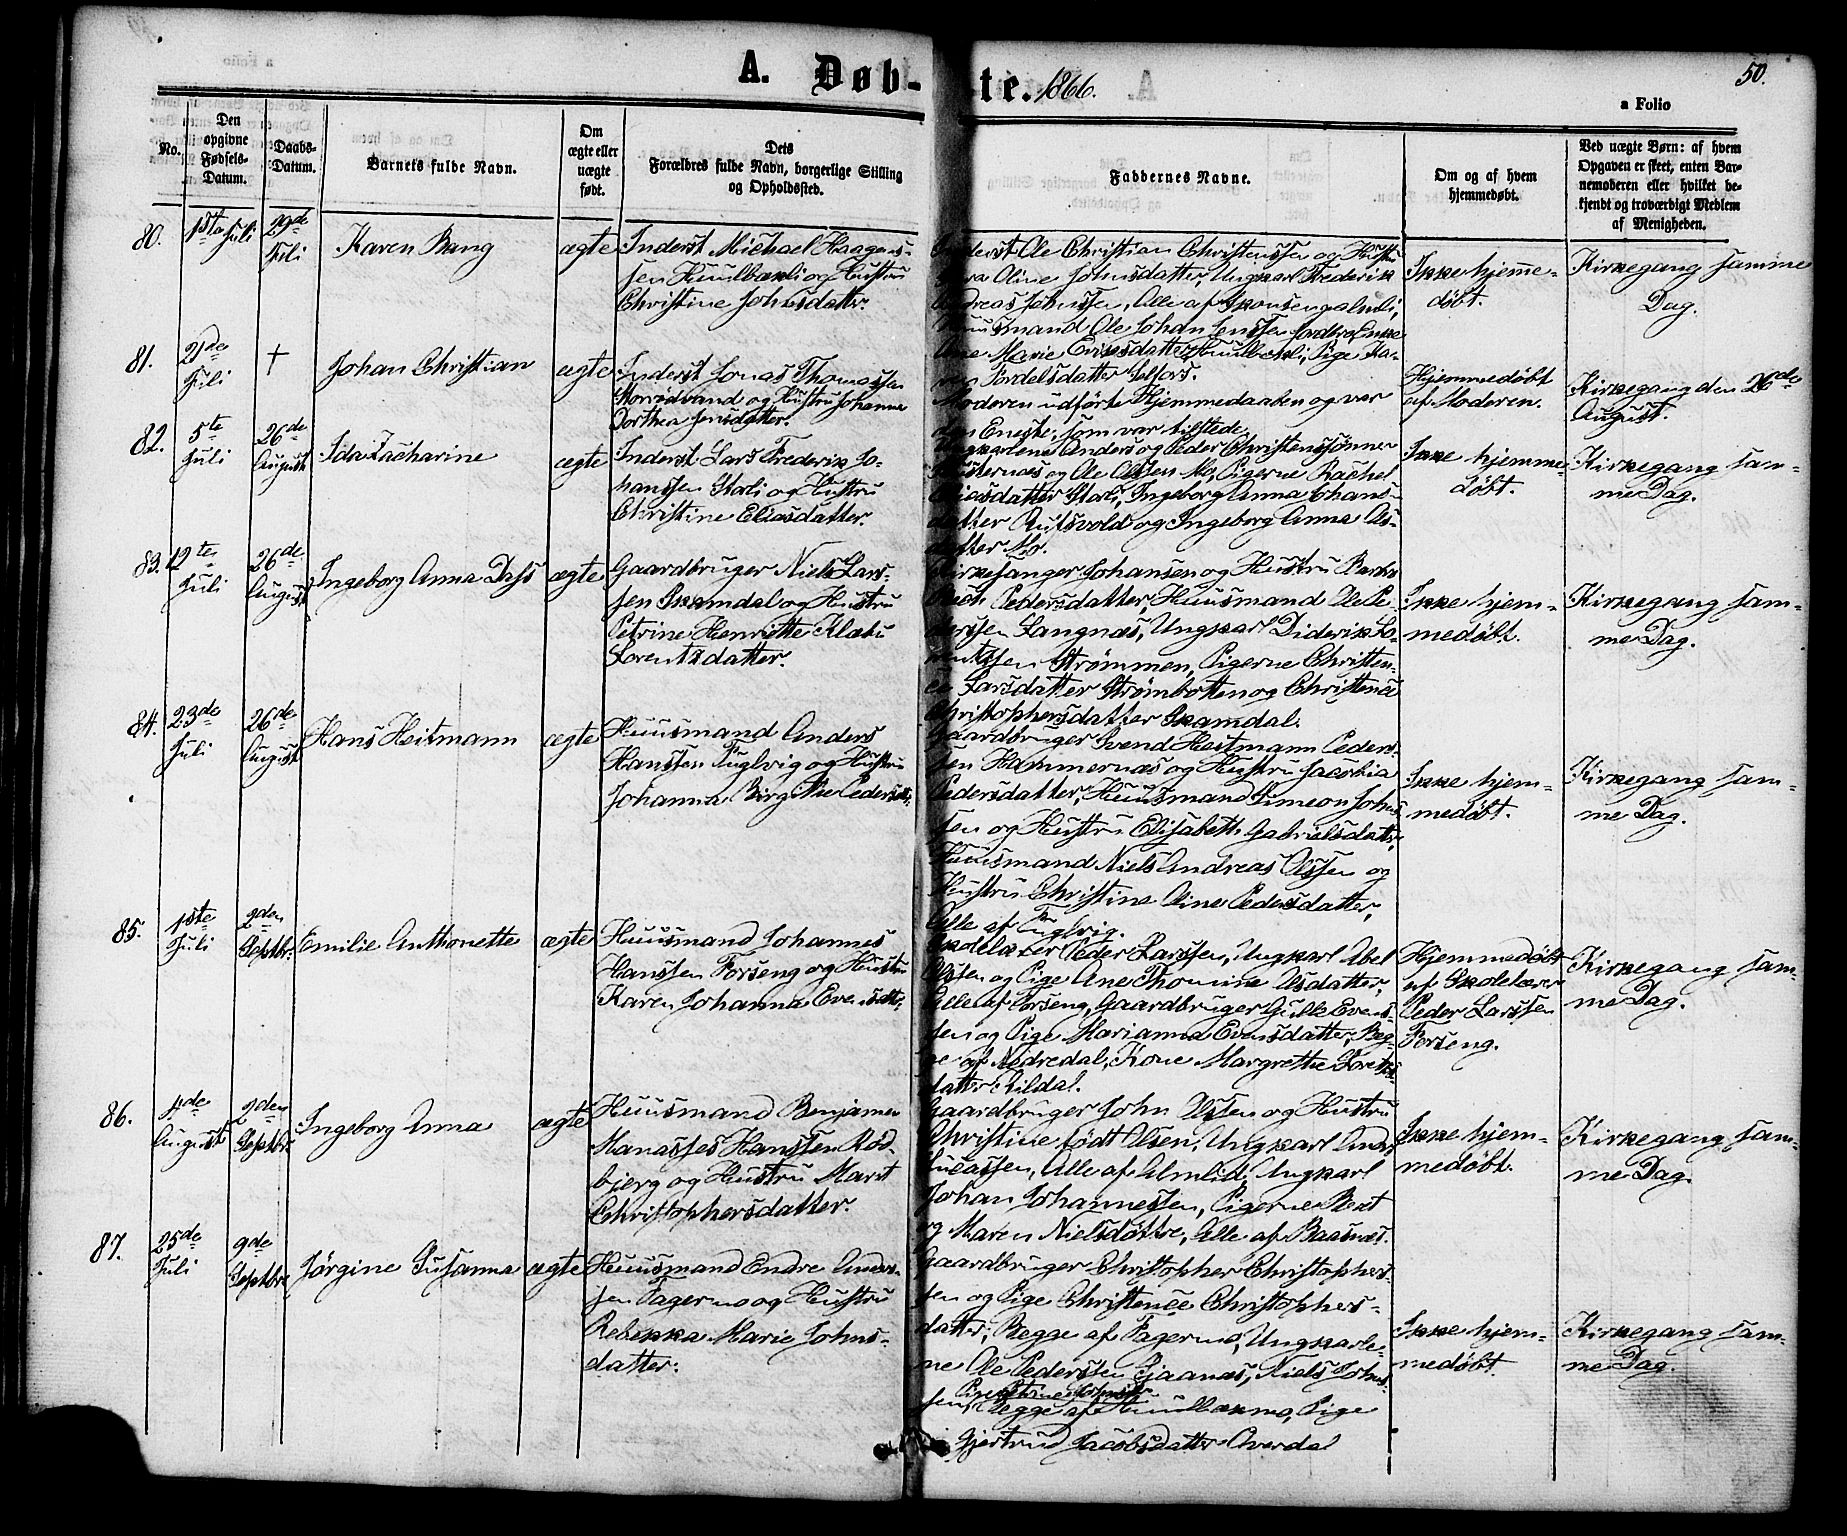 A. Døb-te. 1866.
50.
a Folio
No.
Den opgivne Fødsels-Datum.
Daabs-Datum.
Barnets fulde Navn.
Om ægte eller uægte født.
Dets Forældres fulde Navn, borgerlige Stilling og Opholdssted.
Faddernes Navne.
Om og af hvem hjemmedøbt.
Ved uægte Børn: af hvem Opgaven er skeet, enten Barnemoderen eller hvilket bekjendt og troværdigt Medlem af Menigheden.
80.
1ste Juli
29de Juli
Karen Bang
ægte
Inderst Michael Haagens-
sen Huulbækli og Hustru
Christine Johnsdatter.
Inderst Ole Christian Christenssen og Hustru
Oline Johnsdatter, Ungkarl Frederik
Andreas Johnssen, Alle af
Huusmand Ole Johan Jenssen
Ane Marie Eriksdatter Huulbækli, Pige Ka-
Pordelsdatter Selfors.
Ikke hjemme-
døbt.
Kirkegang samme
Dag.
81.
21de Juli
†
Johan Christian
ægte
Inderst Jonas Thomassen
Storrødvand og Hustru Johanna
Dorthea Jensdatter.
Moderen udførte Hjemmedaaben og var
den Eneste, som var tilstede.
Hjemmedøbt
af Moderen.
Kirkegang den 26de
August.
82.
5te Juli
26de August
Ida Zacharine
ægte
Inderst Lars Frederik Jo-
hanssen Storli og Hustru
Christine Eliasdatter.
Ungkarlene Anders og Peder Christenssønner
og Ole Olssen Mo, Pigerne Rachel
Eliasdatter Storli, Ingeborg Anna
datter og Ingeborg Anna Ols-
datter Mo.
Ikke hjemme-
døbt.
Kirkegang sam-
me Dag.
83.
12te Juli
26de August
Ingeborg Anna Dass
ægte
Gaardbruger Niels Lars-
sen Skamdal og Hustru
Petrine Henriette Klæbu
Lorentzdatter.
Kirkesanger Johansen og Hustru
Pedersdatter, Huusmand Ole Pe-
derssen Langnæs, Ungkarl Diderik Lo-
rentzsen Strømmen, Pigerne Christen-
ce Larsdatter Strømbotten og Christence
Christophersdatter Skamdal.
Ikke hjem-
medøbt.
Kirkegang sam-
me Dag.
84.
23de Juli
26de August
Hans Heitmann
ægte
Huusmand Anders
Hanssen Fuglvig og Hustru
Johanna Birgitthe Pedersdtr.
Gaardbruger Svend Heitmann Peders-
sen Hammernæs og Hustru Jacobia
Pedersdatter, Huusmand Simeon Johns-
sen og Hustru Elisabeth Gabrielsdatter,
Huusmand Niels Andreas Olssen og
Hustru Christine Oline Pedersdatter,
Alle af Fuglvig.
Ikke hjem-
medøbt.
Kirkegang sam-
me Dag.
85.
1ste Juli
2den Septbr.
Emilie Anthonette
ægte
Huusmand Johannes
Hanssen Forseng og Hustru
Karen Johanna Evensdtr.
Skolelærer Peder Larssen, Ungkarl Abel
Olssen og Pige Ane Thomine Olsdatter,
Alle af Forseng, Gaardbruger Gulle Evens-
sen og Pige Marianna Evensdatter, Beg-
ge af Nedredal, Kone Margrethe
datter Kildal.
Hjemmedøbt
af Skolelærer
Peder Larssen
Forseng.
Kirkegang sam-
me Dag.
86.
4de August
2den Septbr.
Ingeborg Anna
ægte
Huusmand Benjamen
Manasses Hanssen Rød-
bjerg og Hustru Marit
Christophersdatter.
Gaardbruger John Olssen og Hustru
Christine født Olsen, Ungkarl
Lucassen, Alle af Almlid, Ungkarl
Johan Johannessen, Pigerne Beret
og Maren Nielsdøttre, Alle af Baasnæs.
Ikke hjem-
medøbt.
Kirkegang sam-
me Dag.
87.
25de Juli
9de Septbr.
Jørgine Susanna
ægte
Huusmand Endre Anders-
sen Fagermo og Hustru
Rebekka Marie Johns-
datter.
Gaardbruger Christopher Christophers-
sen og Pige Christence Christophers-
datter, Begge af Fagermo, Ungkarle-
ne Ole Pederssen Gjaanæs, Niels Johns-
sen, Begge af Huulbækmo, Pige
Gjertrud Jacobsdatter Overdal
Ikke hjem-
medøbt.
Kirkegang sam-
me Dag.